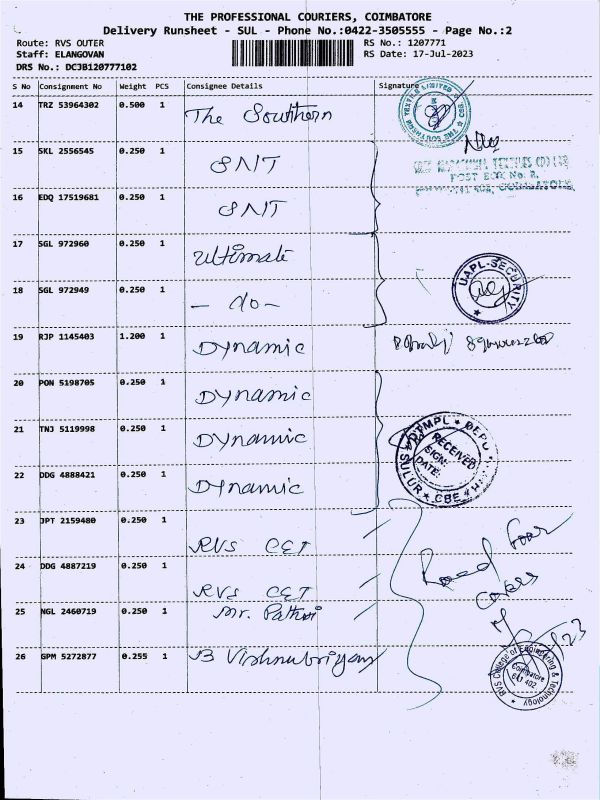 THE PROFESSIONAL COURIERS, COIMBATORE
Delivery Runsheet - SUL - Phone No.:0422-3505555 - Page No.:2
Route: RVS OUTER RS No.: 1207771
Staff: ELANGOVAN RS Date: 17-Jul-2023
DRS No.: DCJB120777102
S No Consignment No Weight PCS Consignee Details Signature
14 TRZ 53964302 0.500 1 The Southern
15 SKL 2556545 0.250 1 SNT
POST BOX No. 2,
16 EDQ 17519681 0.250 1 SNT
17 SGL 972960 0.250 1 Ultimate
UAPL-SECURITY
18 SGL 972949 0.250 1 - do -
19 RJP 1145403 1.200 1 Dynamic
20 PON 5198705 0.250 1 Dynamic
21 TNJ 5119998 0.250 1 Dynamic
RECEIVED
SIGN:
DATE:
SULUR ★ CBE
22 DDG 4888421 0.250 1 Dynamic
23 JPT 2159480 0.250 1 RVS CET
Four
covers
24 DDG 4887219 0.250 1 RVS CET
25 NGL 2460719 0.250 1 Mr.
26 GPM 5272877 0.255 1
RVS College of Engineering & Technology
Coimbatore
641 402